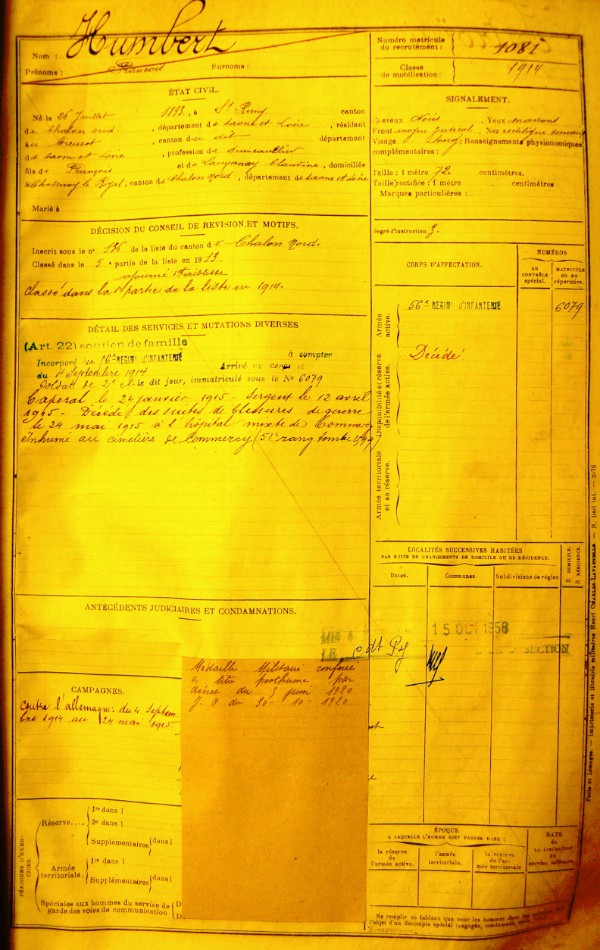 Nom : Humbert
Prénoms : Surnoms :
ÉTAT CIVIL.
Né le 26 Juillet 1893, à St Remy, canton
de Chalon sud, département de Saone et Loire, résidant
au Creusot, canton du dit, département
de Saone et Loire, profession de
fils de François et de Claudine, domiciliés
à Chatenoy le Royal, canton de Chalon Nord, département de Saone et Loire
Marié à
DÉCISION DU CONSEIL DE REVISION ET MOTIFS.
Inscrit sous le n° 136 de la liste du canton de Chalon Nord.
Classé dans la 5e partie de la liste en 1913.
ajourné Faiblesse
Classé dans la partie de la liste en 1914.
DÉTAIL DES SERVICES ET MUTATIONS DIVERSES
(Art. 22) soutien de famille
Incorporé au 56e RÉGIMt D'INFANTERIE à compter
du 4 Septembre 1914 Arrivé au corps et
Soldat de 2e cl. le dit jour, immatriculé sous le No 6079
Caporal le 24 janvier 1915 - Sergent le 12 avril
1915 - Décédé des suites de blessures de guerre
le 24 mai 1915 à l'hôpital mixte de Commercy
Inhumé au cimetière de Commercy (5e rang tombe
ANTÉCÉDENTS JUDICIAIRES ET CONDAMNATIONS.
Médaille Militaire conférée
à titre posthume par
du 3 juin 1920
J. O du 30-10-1920
CAMPAGNES.
Contre l'allemagne: du 4 Septem-
bre 1914 au 24 mai 1915
PÉRIODES D'EXERCICES.
Réserve....
1re dans l
2e dans l
Supplémentaires (dans l
Armée
territoriale.
1re dans l
Supplémentaires (dans l
Spéciales aux hommes du service de
garde des voies de communication
Numéro matricule
du recrutement : 1081
Classe
de mobilisation : 1914
SIGNALEMENT.
Cheveux Noirs Yeux marrons
Front moyen Nez rectiligne
Visage long Renseignements physionomiques
complémentaires :
Taille : 1 mètre 72 centimètres.
Taille rectifiée : 1 mètre centimètres.
Marques particulières :
Degré d'instruction 3.
CORPS D'AFFECTATION.
NUMÉROS
AU
CONTRÔLE
SPÉCIAL.
MATRICULE
OU AU
RÉPERTOIRE.
Armée
active.
56e RÉGIMt D'INFANTERIE
6079
Disponibilité et réserve
de l'armée active.
Décédé
Armée territoriale
et sa réserve.
LOCALITÉS SUCCESSIVES HABITÉES
PAR SUITE DE CHANGEMENTS DE DOMICILE OU DE RÉSIDENCE.
Dates.
Communes
Subdivisions de région
D. DOMICILE.
R. RÉSIDENCE.
15 OCT 1958
SECTION
ÉPOQUE
A LAQUELLE L'HOMME DOIT PASSER DANS :
la réserve
de
l'armée active.
l'armée
territoriale.
la réserve
de l'armée territoriale
DATE
de
LA LIBÉRATION
du
service militaire.
Paris et Limoges. — Imprimerie et librairie militaires Henri CHARLES-LAVAUZELLE